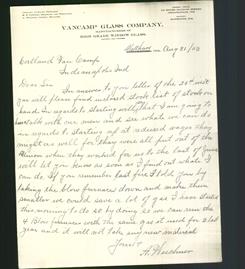 VANCAMP GLASS COMPANY,
MANUFACTURERS OF
HIGH GRADE WINDOW GLASS.
Matthews Aug 21/02
Cortland Van Camp
Indianapolis Ind
Dear Sir
In answer to you letter of the 20th inst
you will please find inclosed stock list of stock on
hand. In regards to starting early, that I am going to
talk with our men and see what we can do
in regards to starting up at reduced wages they
might as well for they were all put out of the
Union when they worked for us to the last of June
will let you know as soon as I find out what I
can do. If you remember last fire I told you by
taking the blow furnaces down and make them
smaller we could save a lot of gas I have started
this morning to do so by doing so we can run the
Blow furnaces with the same gas it used for 2 last
year and it will not take any new material
Yours &c
H. Buechner